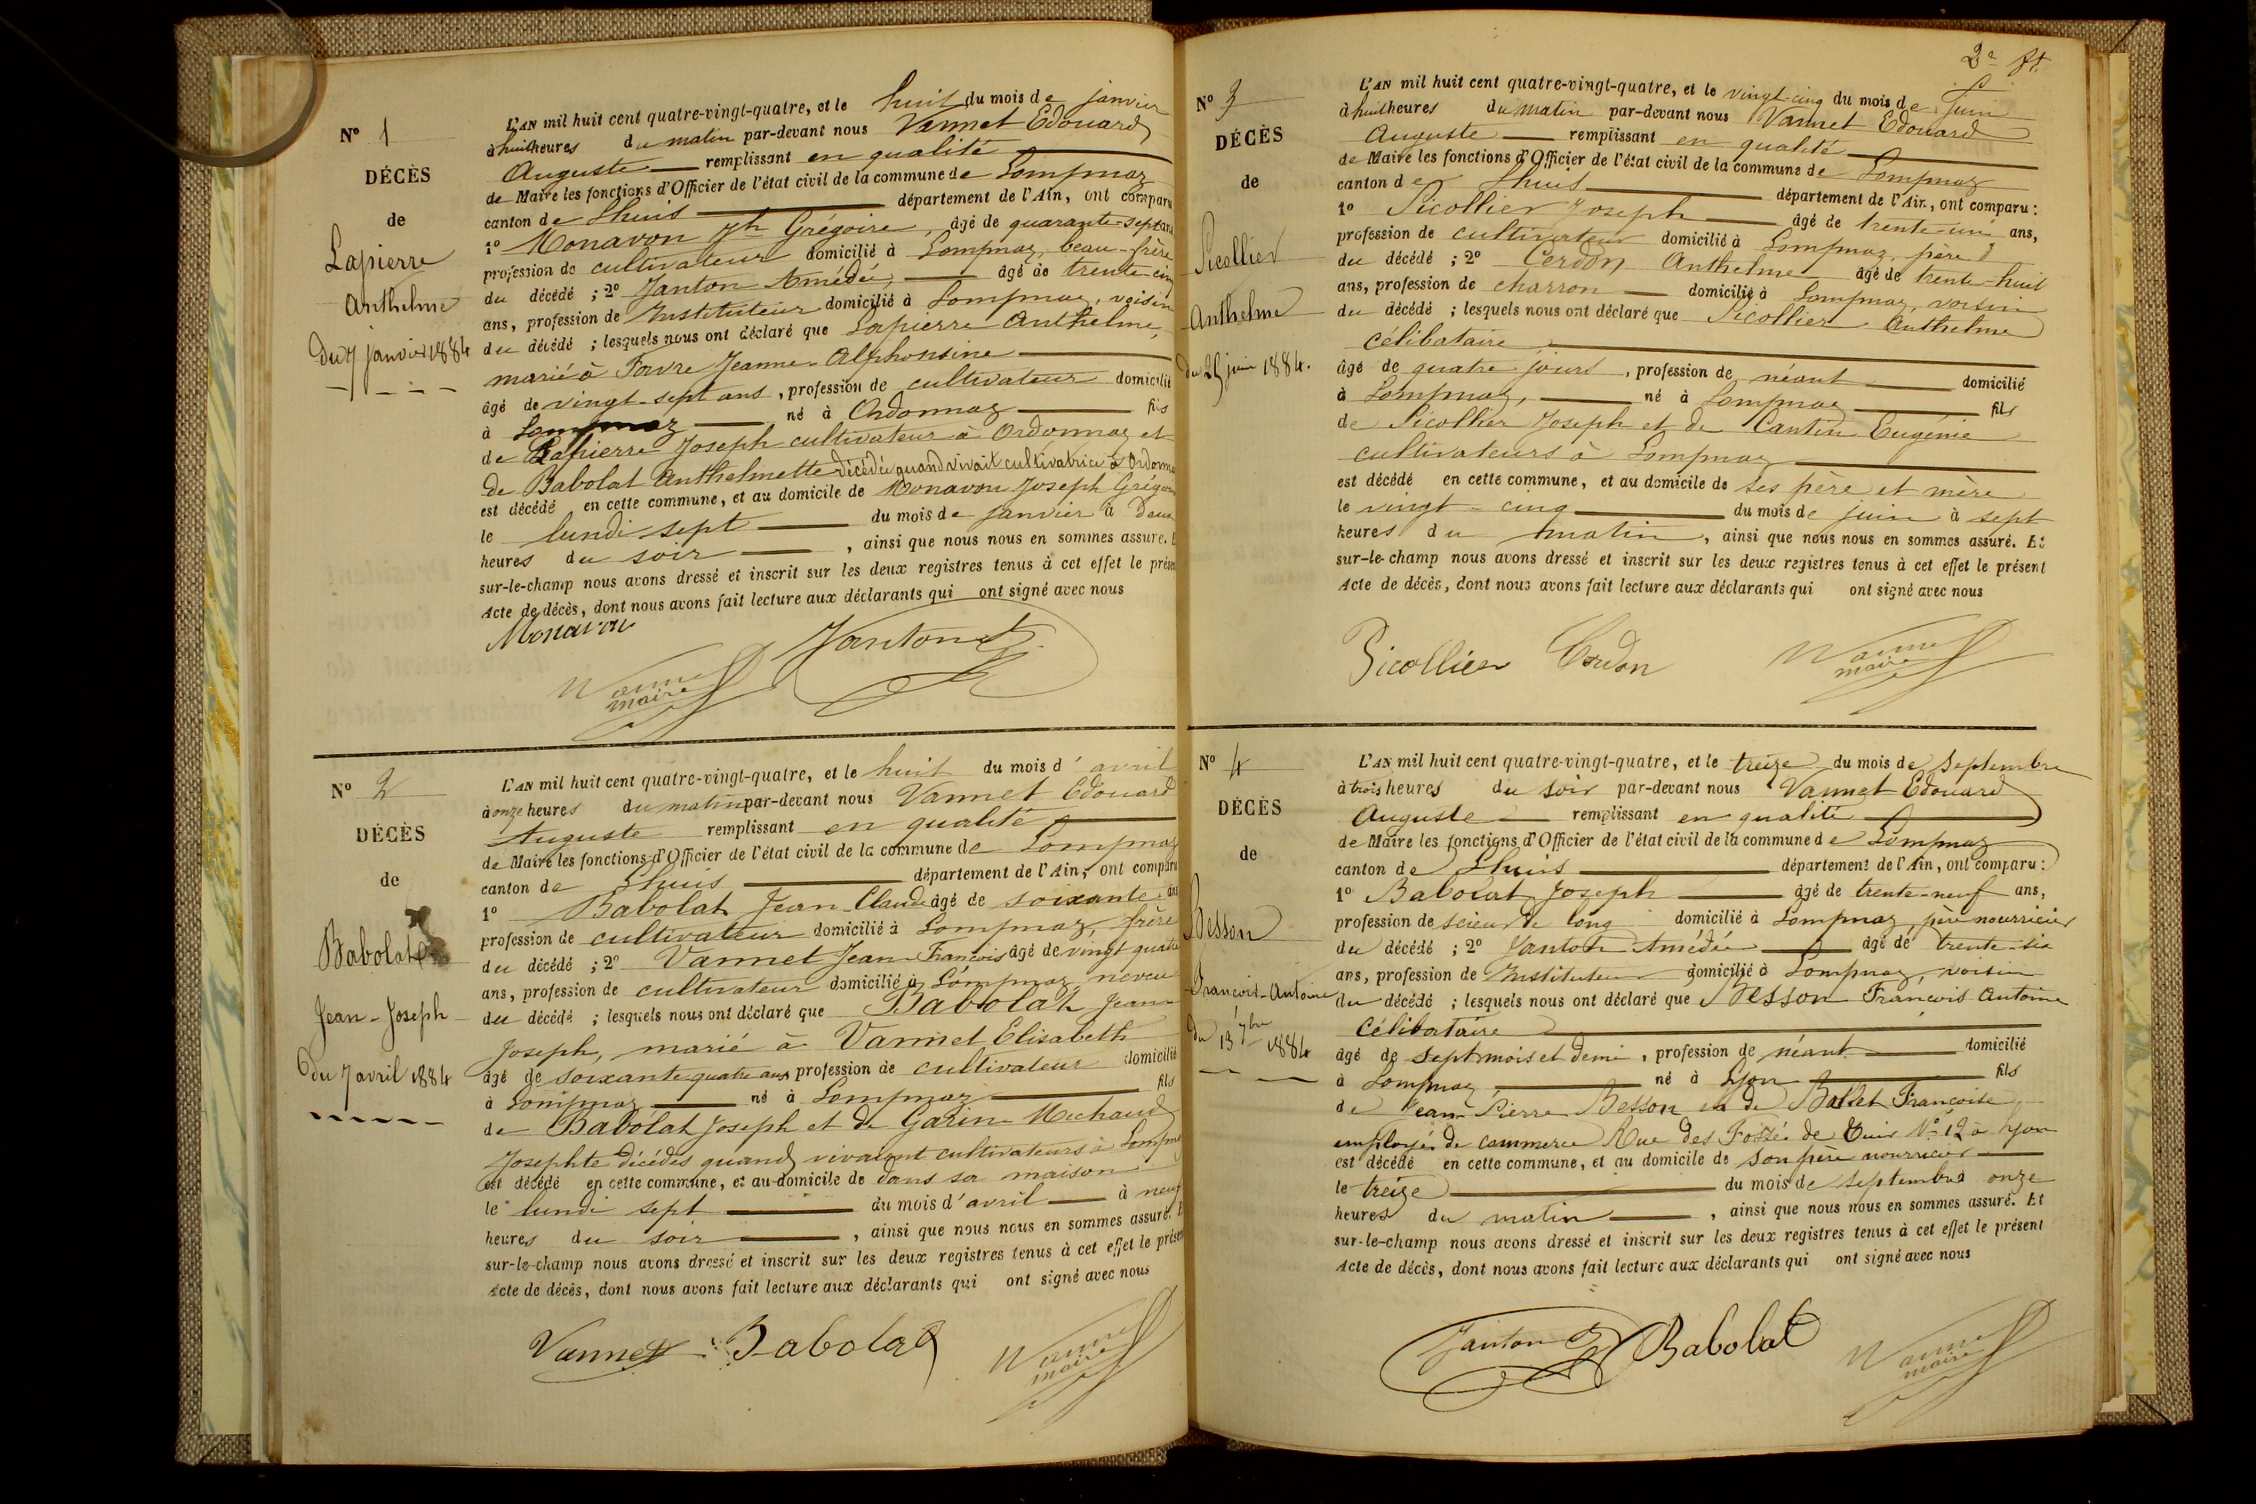 Nº 1
DÉCÈS
de
Lapierre
Anthelme
du 7 janvier 1884
L'AN mil huit cent quatre-vingt-quatre, et le huit du mois de janvier
à huit heures du matin par-devant nous Vannet Edouard
Auguste remplissant en qualité
de Maire les fonctions d'Officier de l'état civil de la commune de Lompnaz
canton de Lhuis département de l'Ain, ont comparu
1º Monavon Jh Grégoire, âgé de quarante-sept ans
profession de cultivateur domicilié à Lompnaz, beau-frère
du décédé ; 2º Janton Amédée, âgé de trente-cinq
ans, profession de Instituteur domicilié à Lompnaz, voisin
du décédé ; lesquels nous ont déclaré que Lapierre Anthelme,
marié à Favre Jeanne-Alphonsine
âgé de vingt-sept ans, profession de cultivateur domicilié
à Lompnaz né à Ordonnaz fils
de Lapierre Joseph cultivateur à Ordonnaz et
de Babolat Anthelmette décédée quand vivait cultivatrice à Ordonna
est décédé en cette commune, et au domicile de Monavon Joseph Grégoire
le lundi sept du mois de janvier à deux
heures du soir, ainsi que nous nous en sommes assuré. E
sur-le-champ nous avons dressé et inscrit sur les deux registres tenus à cet effet le présen
Acte de décès, dont nous avons fait lecture aux déclarants qui ont signé avec nous
Monavon
Janton
Vanne
maire
Nº 2
DÉCÈS
de
Babolat
Jean-Joseph
du 7 avril 1884
L'AN mil huit cent quatre-vingt-quatre, et le huit du mois d'avril
à onze heures du matin par-devant nous Vannet Edouard
Auguste remplissant en qualité
de Maire les fonctions d'Officier de l'état civil de la commune de Lompnaz
canton de Lhuis département de l'Ain, ont comparu
1º Babolat Jean-Claude âgé de soixante ans
profession de cultivateur domicilié à Lompnaz, frère
du décédé ; 2º Vannet Jean-François âgé de vingt quatre
ans, profession de cultivateur domicilié à Lompnaz, neveu
du décédé ; lesquels nous ont déclaré que Babolat Jean
Joseph, marié à Vannet Elisabeth
âgé de soixante quatre ans profession de cultivateur domicilié
à Lompnaz né à Lompnaz fils
de Babolat Joseph et de Garin Michaud
Josephte décédés quand vivaient cultivateurs à Lompna
est décédé en cette commune, et au domicile de dans sa maison
le lundi sept du mois d'avril à neuf
heures du soir, ainsi que nous nous en sommes assuré. E
sur-le-champ nous avons dressé et inscrit sur les deux registres tenus à cet effet le présen
Acte de décès, dont nous avons fait lecture aux déclarants qui ont signé avec nous
Vannet Babolat
Vanne
maire
2e ft.
Nº 3
DÉCÈS
de
Picollier
Anthelme
du 25 juin 1884.
L'AN mil huit cent quatre-vingt-quatre, et le vingt-cinq du mois de juin
à huit heures du matin par-devant nous Vannet Edouard
Auguste remplissant en qualité
de Maire les fonctions d'Officier de l'état civil de la commune de Lompnaz
canton de Lhuis département de l'Ain, ont comparu :
1º Picollier Joseph âgé de trente-un ans,
profession de cultivateur domicilié à Lompnaz, père
du décédé ; 2º Cerdon Anthelme âgé de trente-huit
ans, profession de charron domicilié à Lompnaz, voisin
du décédé ; lesquels nous ont déclaré que Picollier Anthelme
célibataire
âgé de quatre jours, profession de néant domicilié
à Lompnaz, né à Lompnaz fils
de Picollier Joseph et de Cantin Eugénie
cultivateurs à Lompnaz
est décédé en cette commune, et au domicile de ses père et mère
le vingt-cinq du mois de juin à sept
heures du matin, ainsi que nous nous en sommes assuré. Et
sur-le-champ nous avons dressé et inscrit sur les deux registres tenus à cet effet le présent
Acte de décès, dont nous avons fait lecture aux déclarants qui ont signé avec nous
Picollier Cerdon
Vanne
maire
Nº 4
DÉCÈS
de
Besson
François-Antoine
du 13 7bre 1884
L'AN mil huit cent quatre-vingt-quatre, et le treize du mois de Septembre
à trois heures du soir par-devant nous Vannet Edouard
Auguste remplissant en qualité
de Maire les fonctions d'Officier de l'état civil de la commune de Lompnaz
canton de Lhuis département de l'Ain, ont comparu :
1º Babolat Joseph âgé de trente-neuf ans,
profession de scieur de long domicilié à Lompnaz, père nourricier
du décédé ; 2º Janton Amédée âgé de trente-six
ans, profession de Instituteur domicilié à Lompnaz, voisin
du décédé ; lesquels nous ont déclaré que Besson François Antoine
célibataire
âgé de sept mois et demi, profession de néant domicilié
à Lompnaz né à Lyon fils
de Jean-Pierre Besson et de Ballet Françoise
employés de commerce Rue des Fossés de Nº 12 à Lyon
est décédé en cette commune, et au domicile de son père nourricier
le treize du mois de septembre à onze
heures du matin, ainsi que nous nous en sommes assuré. Et
sur-le-champ nous avons dressé et inscrit sur les deux registres tenus à cet effet le présent
Acte de décès, dont nous avons fait lecture aux déclarants qui ont signé avec nous
Janton Babolat
Vanne
maire